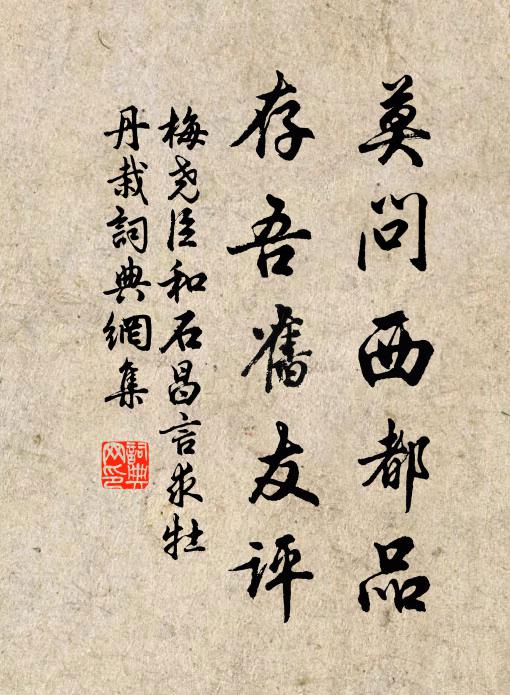 莫問西都品
存吾舊友評
梅尭臣和石昌言求牡
丹栽詞典網集
詞典网印